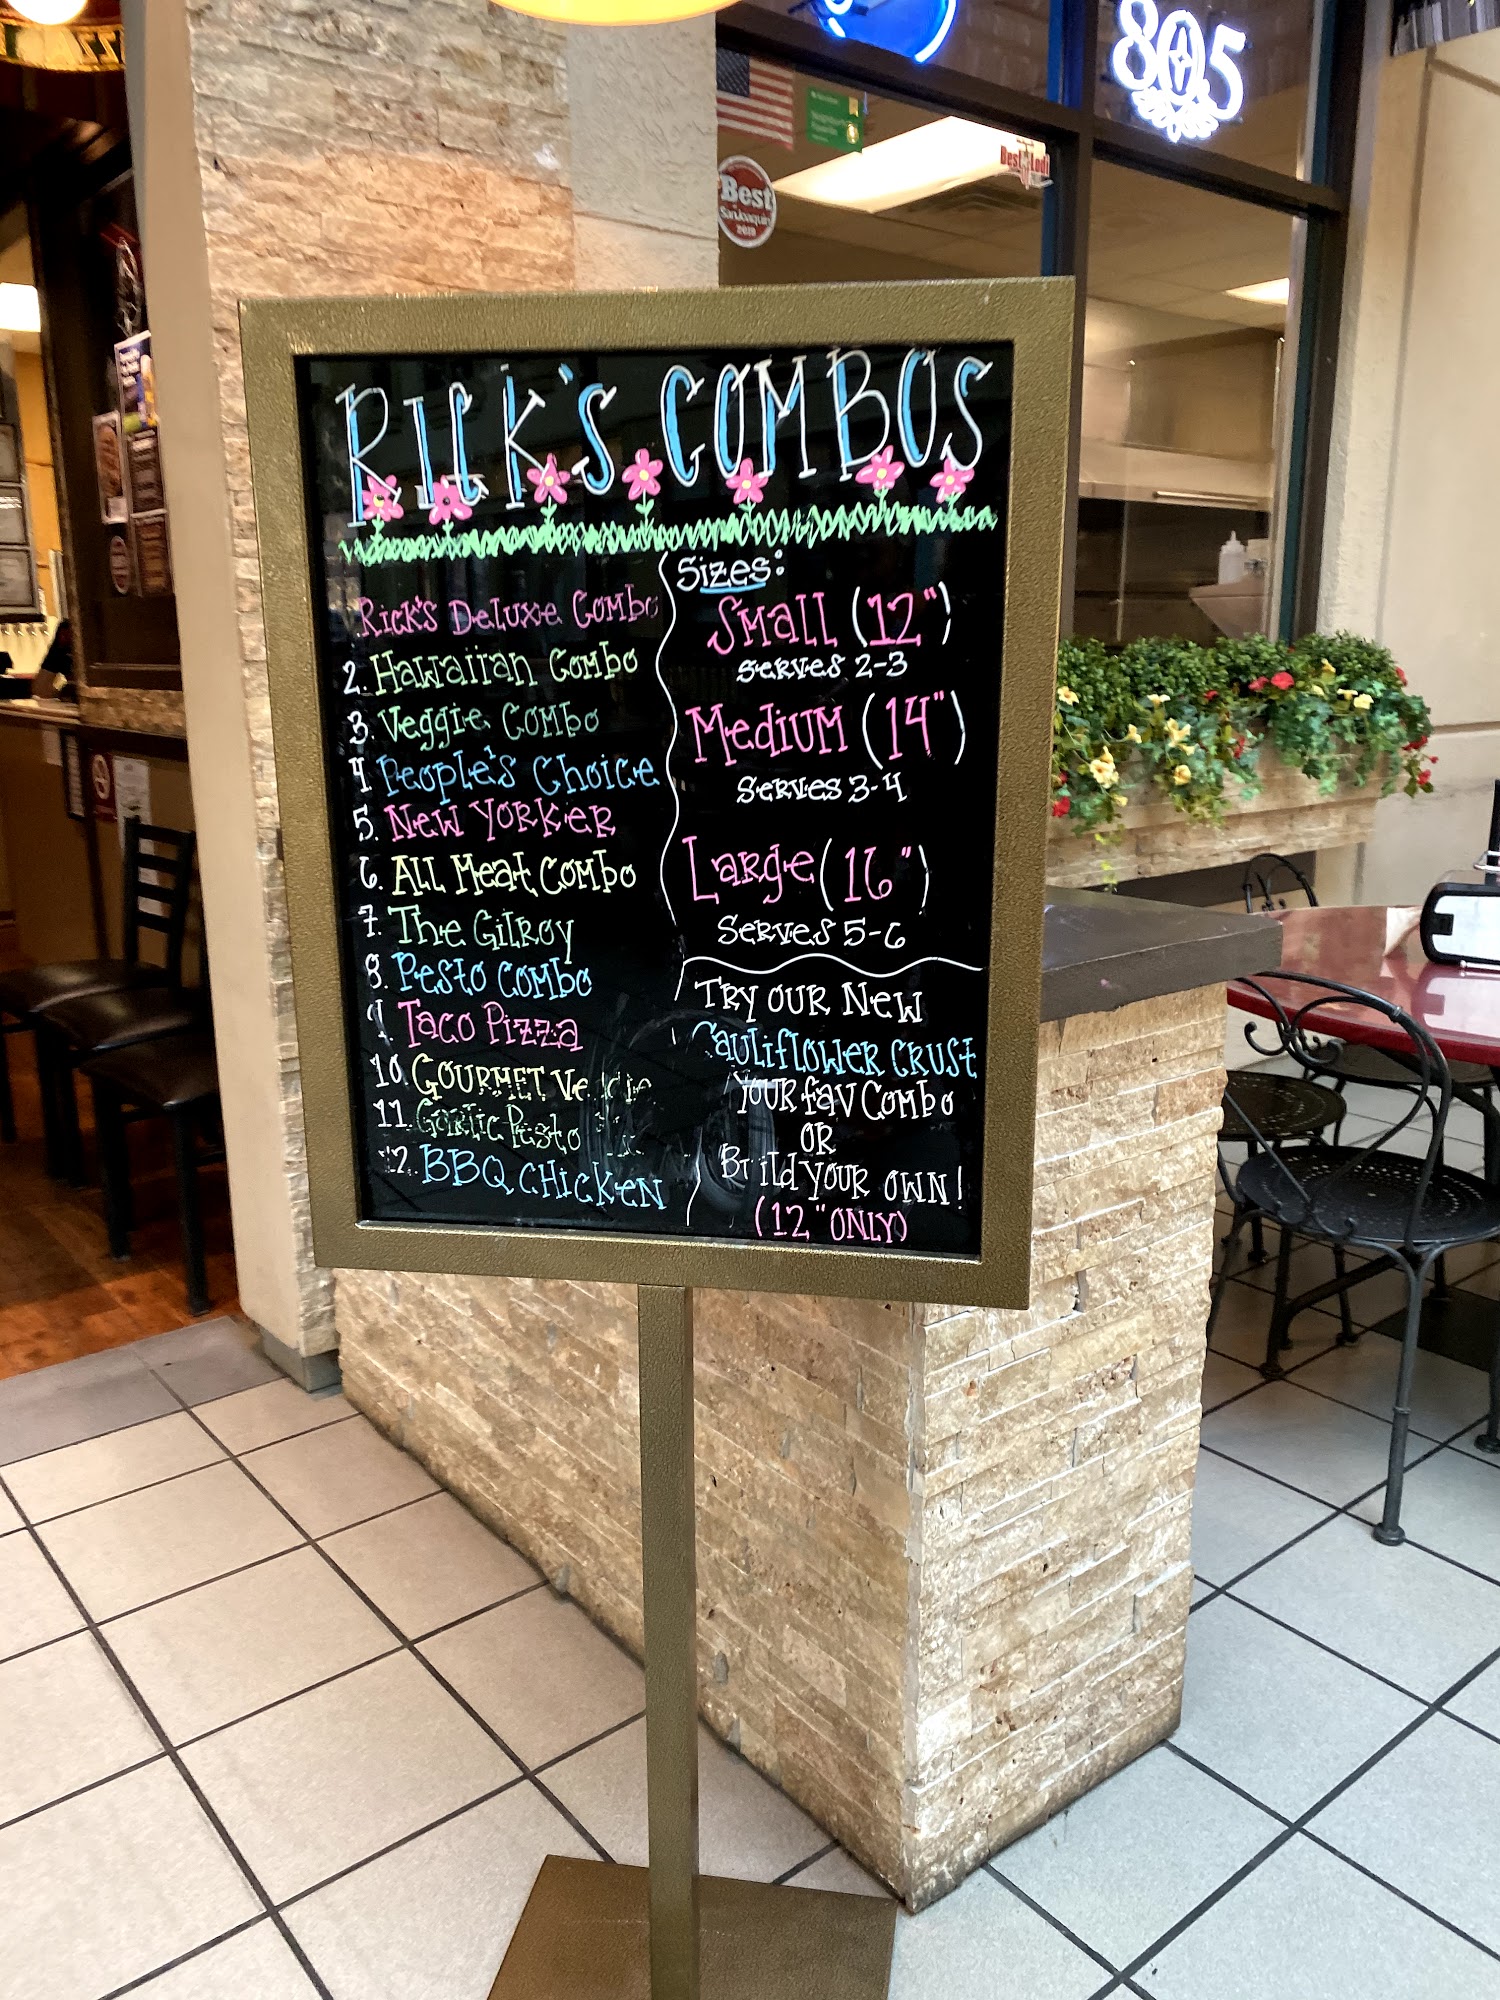 805
Best
SanJoaquin
Best Lodi
RICK'S COMBOS
Rick's Deluxe Combo
2. Hawaiian Combo
3. Veggie Combo
4 People's Choice
5. New Yorker
6. All Meat Combo
7. The Gilroy
8. Pesto Combo
9. Taco Pizza
10. Gourmet
11. Garlic Pesto
12. BBQ Chicken
Sizes:
Small (12")
Serves 2-3
Medium (14")
Serves 3-4
Large (16")
Serves 5-6
Try our New
Cauliflower Crust
Your fav Combo
OR
Build your own!
(12" only)